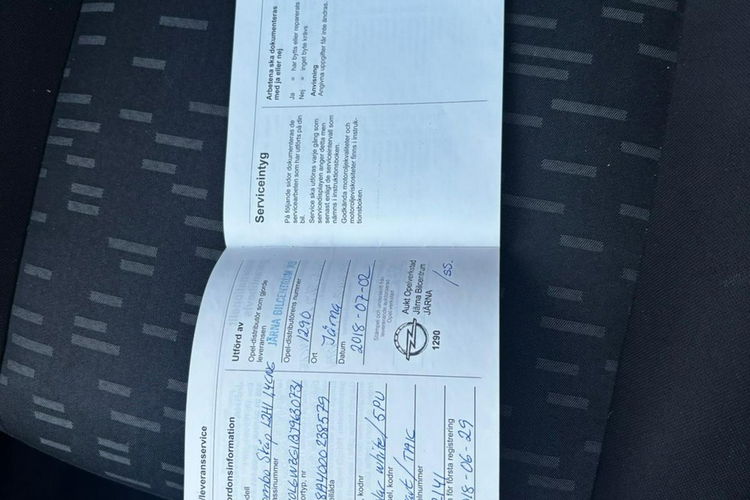 /leveransservice
ordonsinformation
ombo Skåp L2H1 1,4CNG
assinummer
ortyp, nr
xellåda
kodnr
el, kodnr
elnummer
för första registrering
8-06-29
Utförd av
Opel-distributör som gjorde
leveransen
JÄRNA BILCENTRUM AB
Opel-distributörens nummer
1290
Ort
Järna
Datum
2018-07-02
Aukt Opelverkstad
Järna Bilcentrum
JÄRNA
1290
/SS.
Serviceintyg
På följande sidor dokumenteras de
servicearbeten som har utförts på din
bil.
Service ska utföras varje gång som
servicedisplayen anger detta men
senast enligt de serviceintervall som
nämns i instruktionsboken.
Godkända motoroljekvaliteter och
motoroljeviskositeter finns i instruk-
tionsboken.
Arbetena ska dokumenteras
med ja eller nej
Ja = har bytts eller reparerats
Nej = inget byte krävs
Anvisning
Angivna uppgifter får inte ändras.